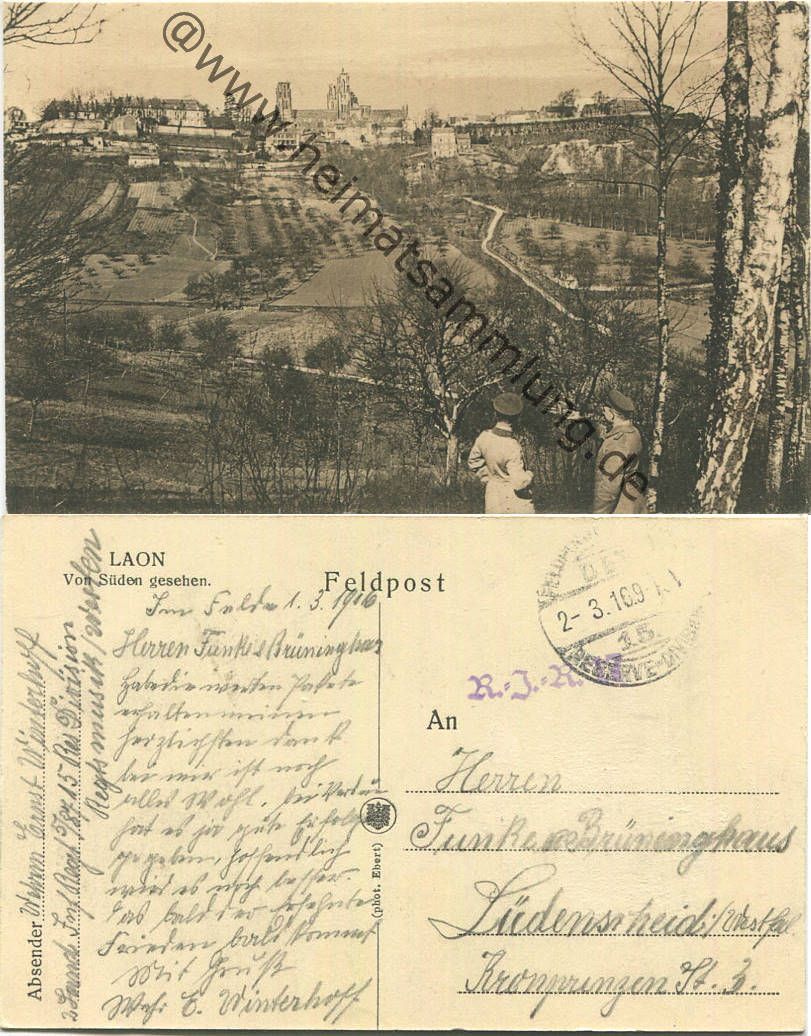 @www.heimatsammlung.de
LAON
Von Süden gesehen.
Feldpost
Im Felde 1. 3. 1916
Herren Funke & Brüninghaus
Habe die werten Pakete
erhalten meinen
herzlichsten Dank
bei mir ist noch
alles Wohl. bei Verdun
hat es ja gute Erfolge
gegeben, hoffendlich
wird es noch besser.
das bald der ersehnte
Frieden bald kommt
Mit Gruß
Wehr E. Winterhoff
Absender Wehrm Ernst Winterhoff
Inf Regt 15 Res Division
Regtsmusik/Westen
(phot. Ebert)
2- 3. 16.9-
15.
RESERVE-DIVISION
R.-J.-R.
An
Herren
Funke & Brüninghaus
Lüdenscheid i/Westfal
Kronprinzen St. 3.